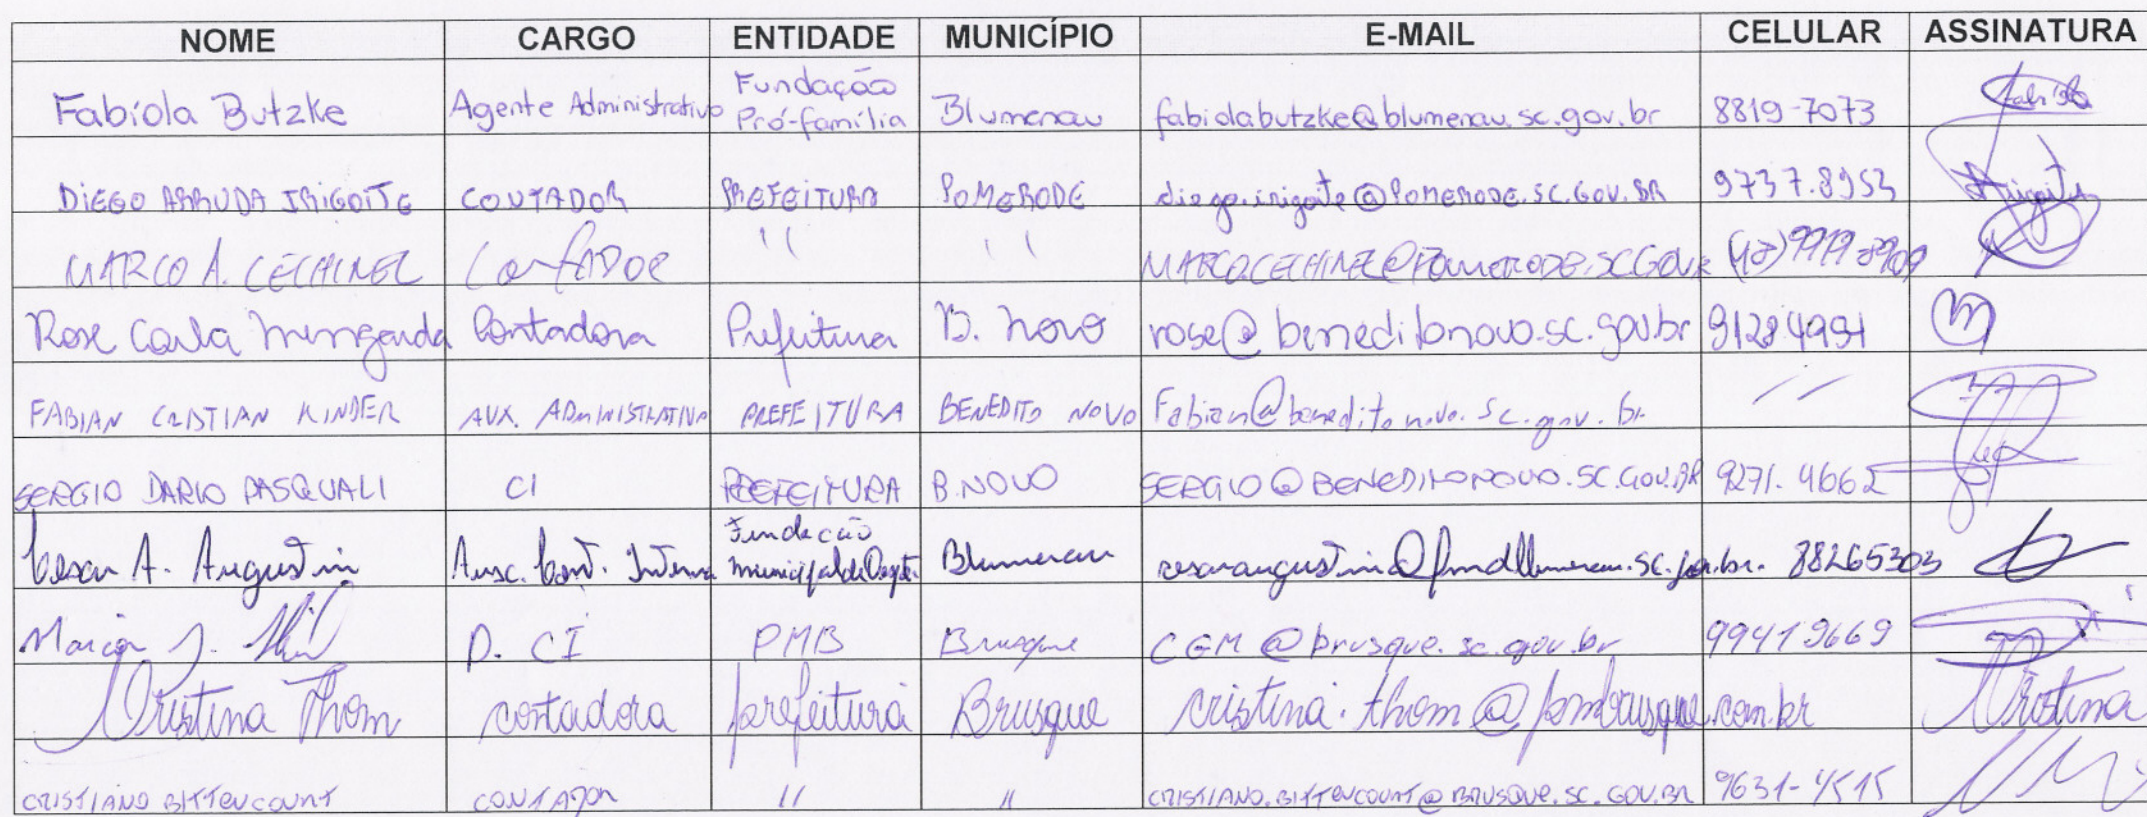 NOME CARGO ENTIDADE MUNICÍPIO E-MAIL CELULAR ASSINATURA
Fabíola Butzke Agente Administrativo Fundação Pró-família Blumenau fabiolabutzke@blumenau.sc.gov.br 8819-7073 Fabíola
DIEGO ARRUDA IRIGOITE CONTADOR PREFEITURA POMERODE diego.irigoite@POMERODE.SC.GOV.BR 9737.8953 Irigoite
MARCO A. CECHINEL CONTADOR " " MARCO.CECHINEL@POMERODE.SC.GOV. (47)
Rose Carla Contadora Prefeitura B. Novo rose@beneditonovo.sc.gov.br 9128.4991
FABIAN CRISTIAN KINDER AUX. ADMINISTRATIVO PREFEITURA BENEDITO NOVO Fabian@beneditonovo.sc.gov.br //
SERGIO DARIO PASQUALI CI PREFEITURA B. NOVO SERGIO@BENEDITONOVO.SC.GOV.BR 9271.4662
Cesar A. Augustini Ausc. Cont. Interno Fundação Municipal de Blumenau 88265303
Marcia J. D. CI PMB Brusque CGM@brusque.sc.gov.br 99419669
Cristina Thom contadora prefeitura Brusque cristina.thom@pmbrusque.com.br Cristina
CRISTIANO BITTENCOURT CONTADOR " " CRISTIANO.BITTENCOURT@BRUSQUE.SC.GOV.BR 9631-4515